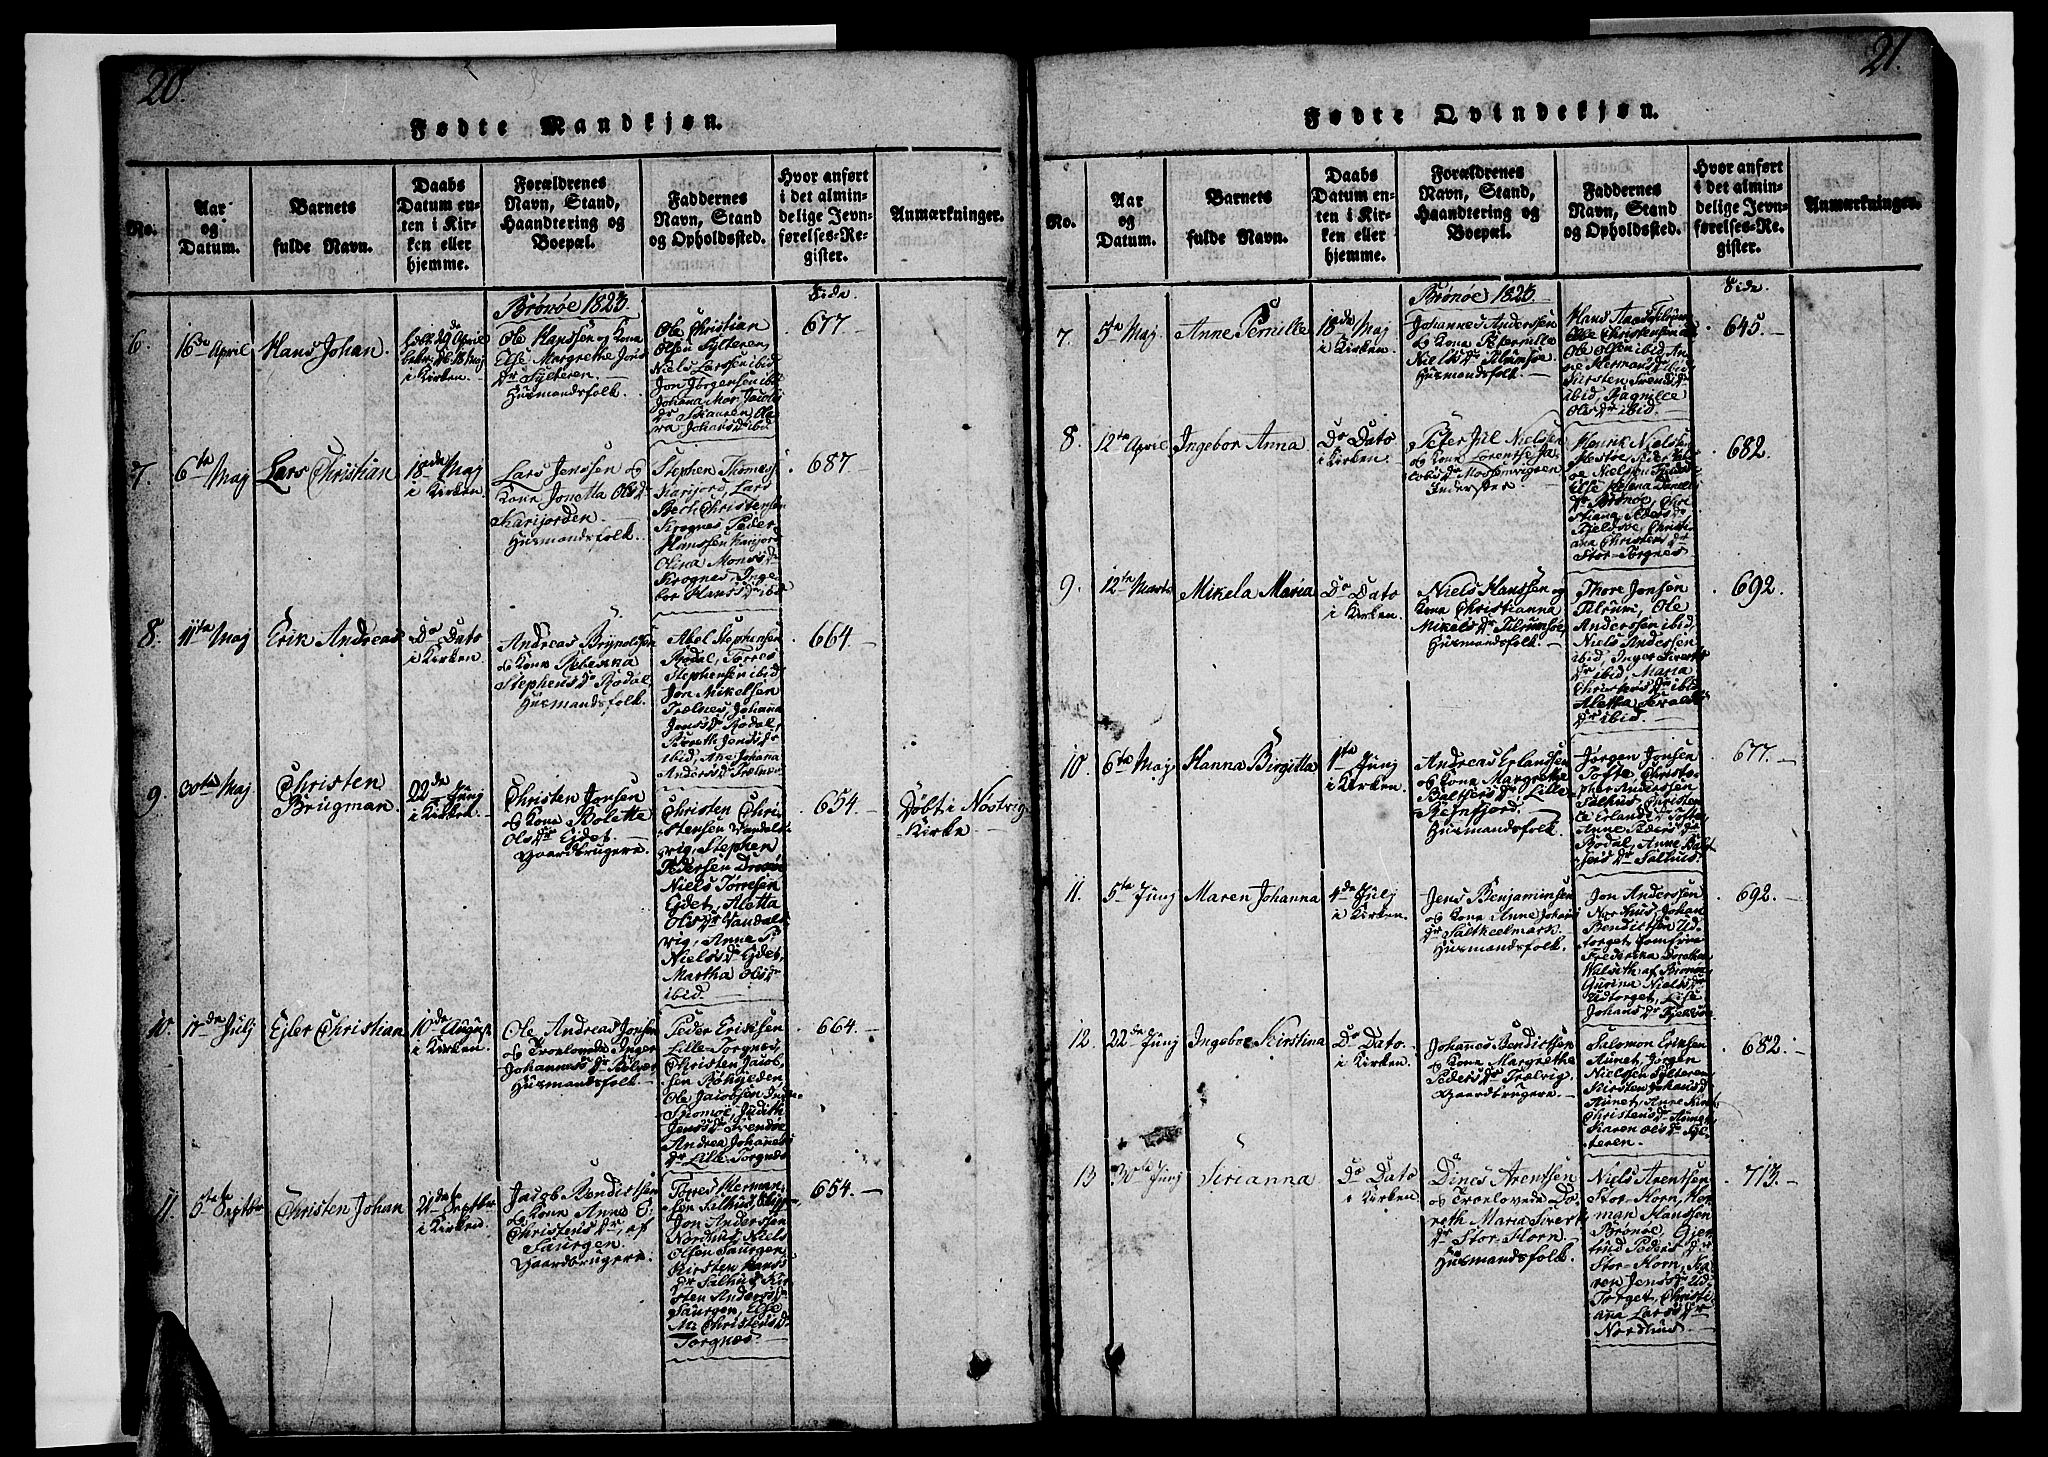 20.
Fødte Mandkjøn.
No.
Aar
og
Datum.
Barnets
fulde Navn.
Daabs
Datum en-
ten i Kir-
ken eller
hjemme.
Forældrenes
Navn, Stand,
Haandtering og
Boepæl.
Faddernes
Navn, Stand
og Opholdssted.
Hvor anført
i det almin-
delige Jevn-
førelses-Re-
gister.
Anmærkninger.
Brønøe 1823.
Side.
6.
16de April
Hans Johan.
i Kirken.
Ole Hanssen og Kone
Else Margrethe Jons
Dr Sylteren.
Husmandsfolk.
Ole Christian
Olsen Sylteren,
Niels Larssen ibid
Jon Jørgensen ibid
Johana Mar. Jacobs
Dr Skaaren, Ole
va Johansdr ibid
677
7.
6te Maj
Lars Christian
18de Maj
i Kirken.
Lars Jenssen og
Kone Jonetta Olsdr
Karijorden.
Husmandsfolk.
Stephen Thomess.
Karijord, Lars
Bech Christensen
Krognes, Peder
Hanssen Karijord
Olina Monsdr
Krognes, Inge
bor Hansdr ibid
687
8.
11te Maj
Erik Andreas
Do Dato
i Kirken
Andreas Brynolfsen
og Kone Rebenna
Stephensdr Rodal,
Husmandsfolk.
Abel Stephensen
Rodal, Torres
Stephensen ibid
Jon Mikelsen
Trælnes, Johana
Jonsdr Rodal,
Bereth Jonsdr
ibid, Ane Johana
Andersdr Trælnes
664
9.
30te Maj
Christen
Brugman.
22de Juny
i Kirken.
Christen Jonsen
og Kone Bolette
Olsdr Ejdet.
Gaardbrugere.
Christen Chri-
stensen Vandals-
vig, Stephen
Pedersen
Niels Torresen
Ejdet, Aletta
Olsdr Vandals-
vig, Anne P.
Nielsdr Ejdet,
Martha Olsdr
ibid.
654
Døbt i Nøstvig
Kirke
10.
17de Julj
Ejler Christian
10de August
i Kirken.
Ole Andreas Jonsen
og Trolovede Inger
Johannesdr
Husmandsfolk
Peder Eriksen
Lille-Torgnes,
Christen Jacob-
sen Bøhyeden,
Ole Jacobsen
Jensdr
Andrea Johannes
dr Lille-Torgnes
664.
11.
5te Septbr
Christen Johan
21de Septbr
i Kirken.
Jacob Bendictsen
og Kone Anne S.
Christensdr, af
Saurgen.
Gaardbrugere.
Torres Herman
sen Salhus,
Jon Andersen
Nordhus, Niels
Olsen Saurgen,
Kirsten Hans
dr Salhus, Kir-
sten Andersdr
Saurgen, Else
M. Christensdr
Torgnes.
654.
21.
Fødte Qvindekjøn.
No.
Aar
og
Datum.
Barnets
fulde Navn.
Daabs
Datum en-
ten i Kir-
ken eller
hjemme.
Forældrenes
Navn, Stand,
Haandtering og
Boepæl.
Faddernes
Navn, Stand
og Opholdssted.
Hvor anført
i det almin-
delige Jevn-
førelses-Re-
gister.
Anmærkninger.
Brønøe 1823.
Side.
7.
5te Maj
Anne Pernille
18de Maj
i Kirken.
Johannes Anderssen
og Kone Pernille
Nielsdr Tilrumsøe
Husmandsfolk.
Ole Olsen ibid, An
ne Hermansdr ibid
Kirsten Svendsdr
ibid, Ragnille
Olsdr ibid.
645.
8.
12te April
Ingebor Anna
Do Dato
i Kirken.
Peter Jul Nielsen
og Kone Lorentse Ja-
cobsdr Mossemvigen
Inderster.
Henrik Nielsen
Else Helena Daniels
dr Brønøe, Chri
stiana Pedersdr
Christi
ana Christensdr
Stor-Torgnes
682.
9.
12te Marts
Mikela Maria
Do Dato
i Kirken.
Niels Hanssen og
Kone Christianna
Mikelsdr Tilrumsøe,
Husmandsfolk.
Thore Jonsen
Tilrum, Ole
Anderssen ibid,
Niels Andersen
ibid, Inger Siverts
dr ibid, Maria
Christensdr ibid
Aletta
dr ibid.
692.
10.
6te Maj
Hanna Birgitta
1ste Juny
i Kirken.
Andreas Erlandsen
og Kone Margrethe
Baltsersdr Lille
Reinfjord.
Husmandsfolk.
Jørgen Jonsen
Tofte, Christo-
pher Anderssen
Salhus, Christen
Anne Pedersdr
Rodal, Anne Balt
sersdr Salhus.
677.
11.
5te Juny
Maren Johanna
4de Julj
i Kirken.
Jens Benjaminsen
og Kone Anne Johans
dr Saltkeelmark
Husmandsfolk.
Jon Anderssen
Nordhus, Johan
Bendictsen Ud-
torget, Jomfrue
Fredrikka Dorothea
Walseth af Brønøe,
Gurina Nielsdr
Udtorget, Lise
Johansdr
692.
12.
22de Juny
Ingebor Kirstina
Do Dato.
i Kirken.
Johannes Bendictsen
og Kone Margrethe
Pedersdr Trælvig.
Gaardbrugere.
Salomon Eriksen
Aunet, Jørgen
Nielsen Sylteren,
Kirsten Johansdr
Aunet, Anne Kirst.
Christensdr
Karen Olsdr Syl-
teren.
682.
13
30te Juny
Sirianna
Do Dato
i Kirken.
Dines Arentsen
og Trolovede Do-
reth Maria Siverts
dr Stor-Horn.
Husmandsfolk.
Niels Arentsen
Stor-Horn, Her
man Hanssen
Brønøe, Gjer
trud Pedersdr
Stor-Horn, Ka
ren Jensdr Ud-
Torget, Christi
ana Larsdr
Nordhus.
713.